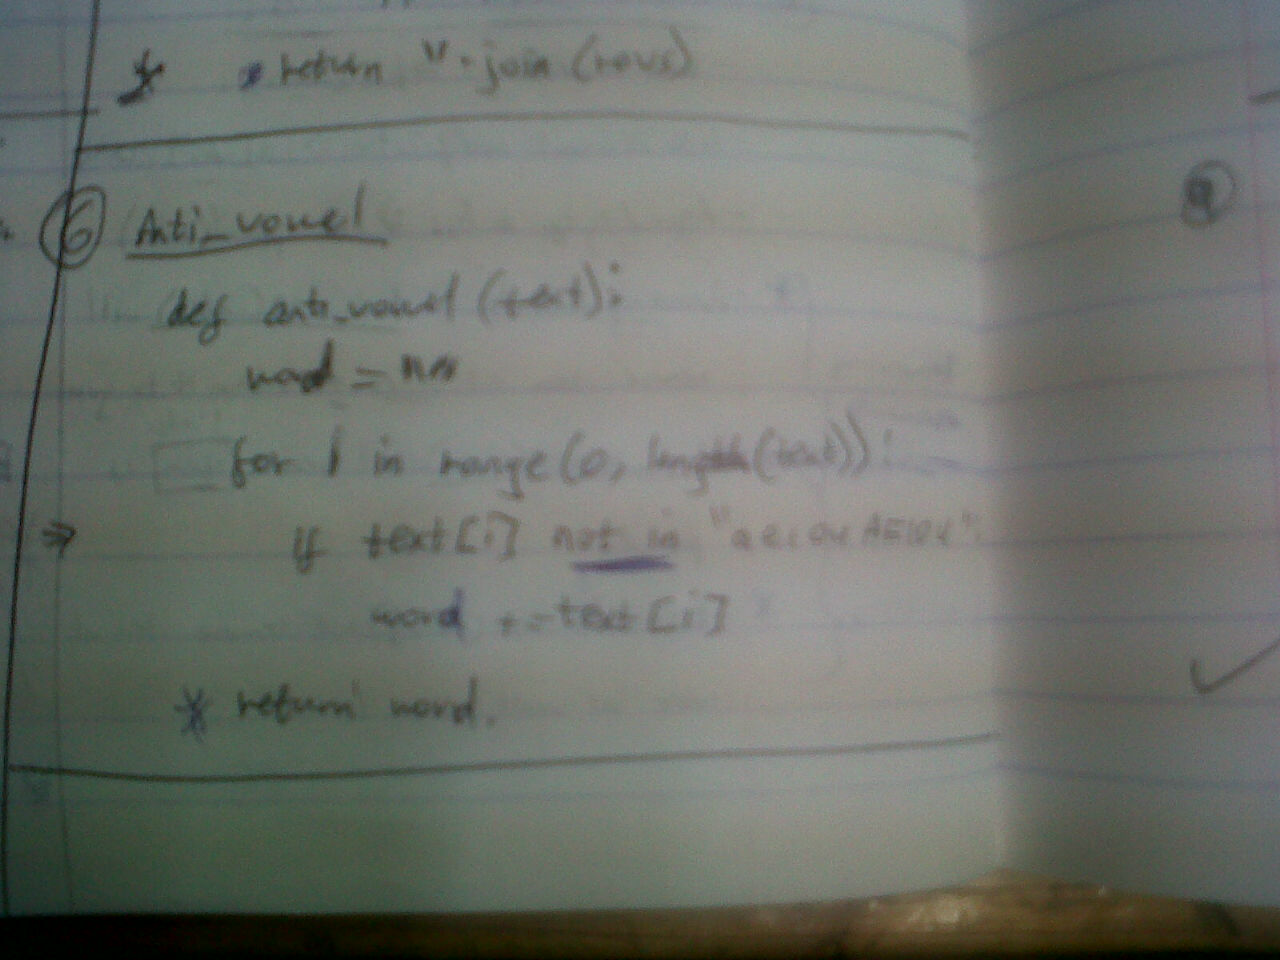 * return ''.join(revs)
6 Anti_vowel
def anti_vowel (text):
word = ""
for i in range(0, length(text)):
⇒ if text[i] not in "aeiouAEIOU":
word += text[i]
* return word.